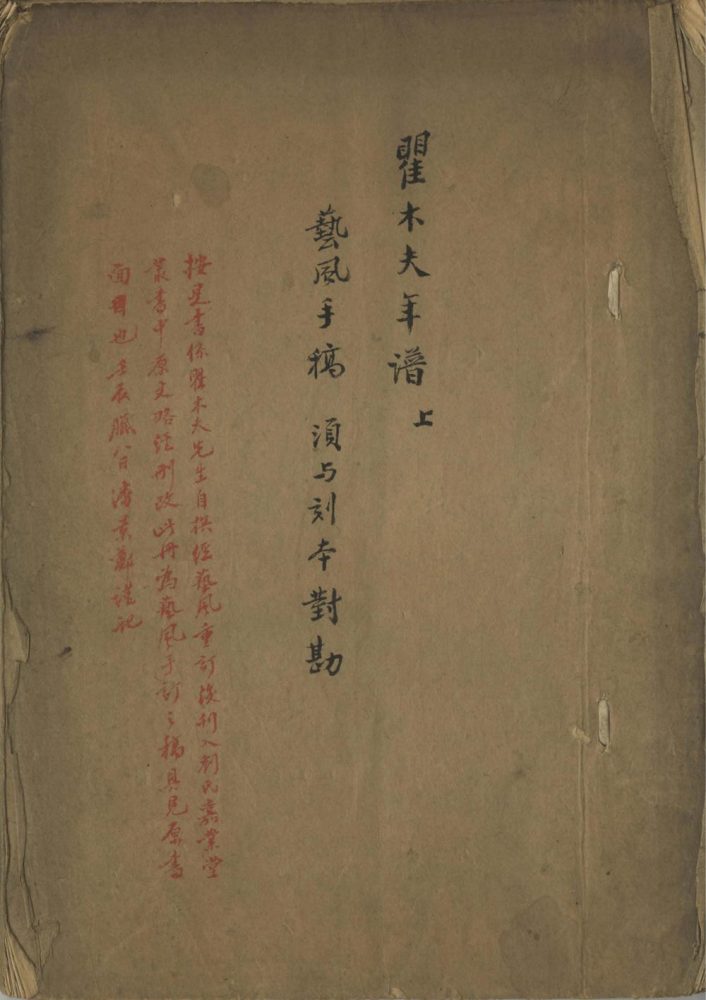 瞿木夫年譜 上
藝風手稿 須与刻本對勘
按是書係瞿木夫先生自撰經藝風重訂後刊入劉氏嘉業堂
叢書中原文略經刪改此冊為藝風手訂之稿具見原書
面目也壬辰臘八日潘景鄭謹記